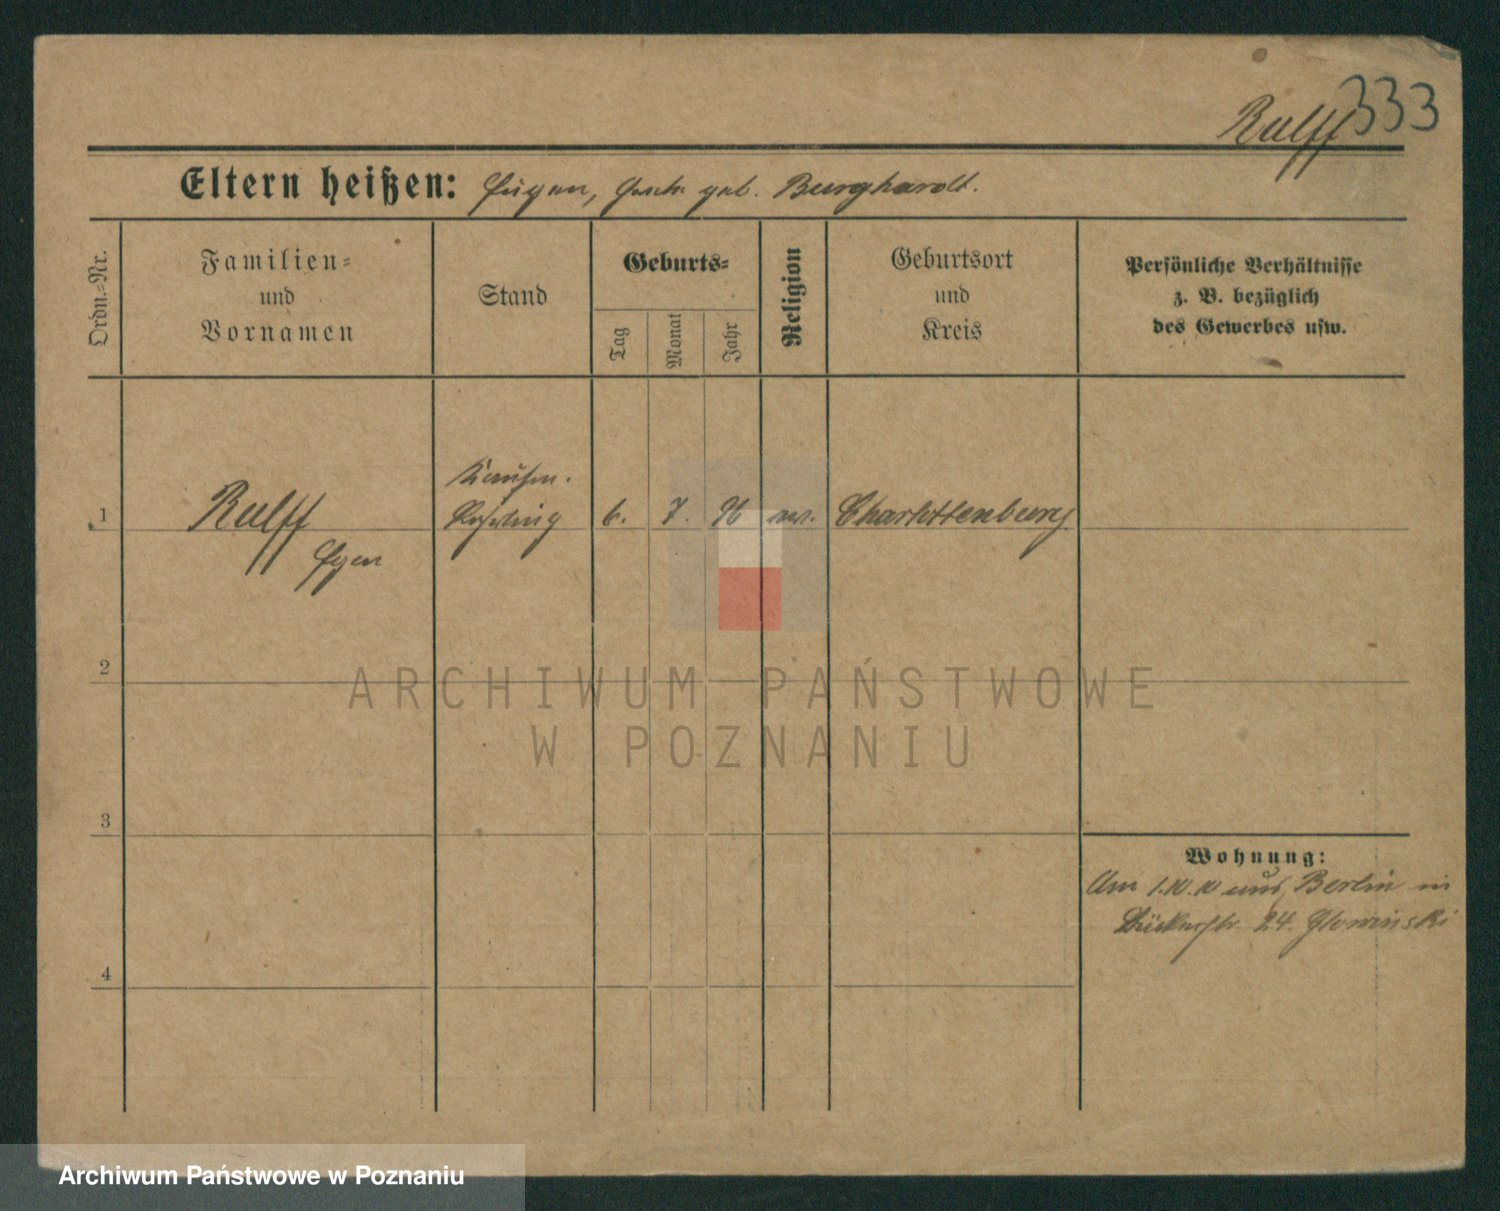 333
Rulff
Eltern heißen: Eugen, geb. Burghardt.
Ordn.-Nr.
Familien-
und
Vornamen
Stand
Geburts-
Tag
Monat
Jahr
Religion
Geburtsort
und
Kreis
Persönliche Verhältnisse
z. B. bezüglich
des Gewerbes usw.
Kaufm.
1 Rulff Lehrling 6. 7. 96 ev. Charlottenburg
2
3
4
Wohnung:
Am 1.10.10 aus Berlin in
24. Glowinski
ARCHIWUM PAŃSTWOWE
W POZNANIU
Archiwum Państwowe w Poznaniu